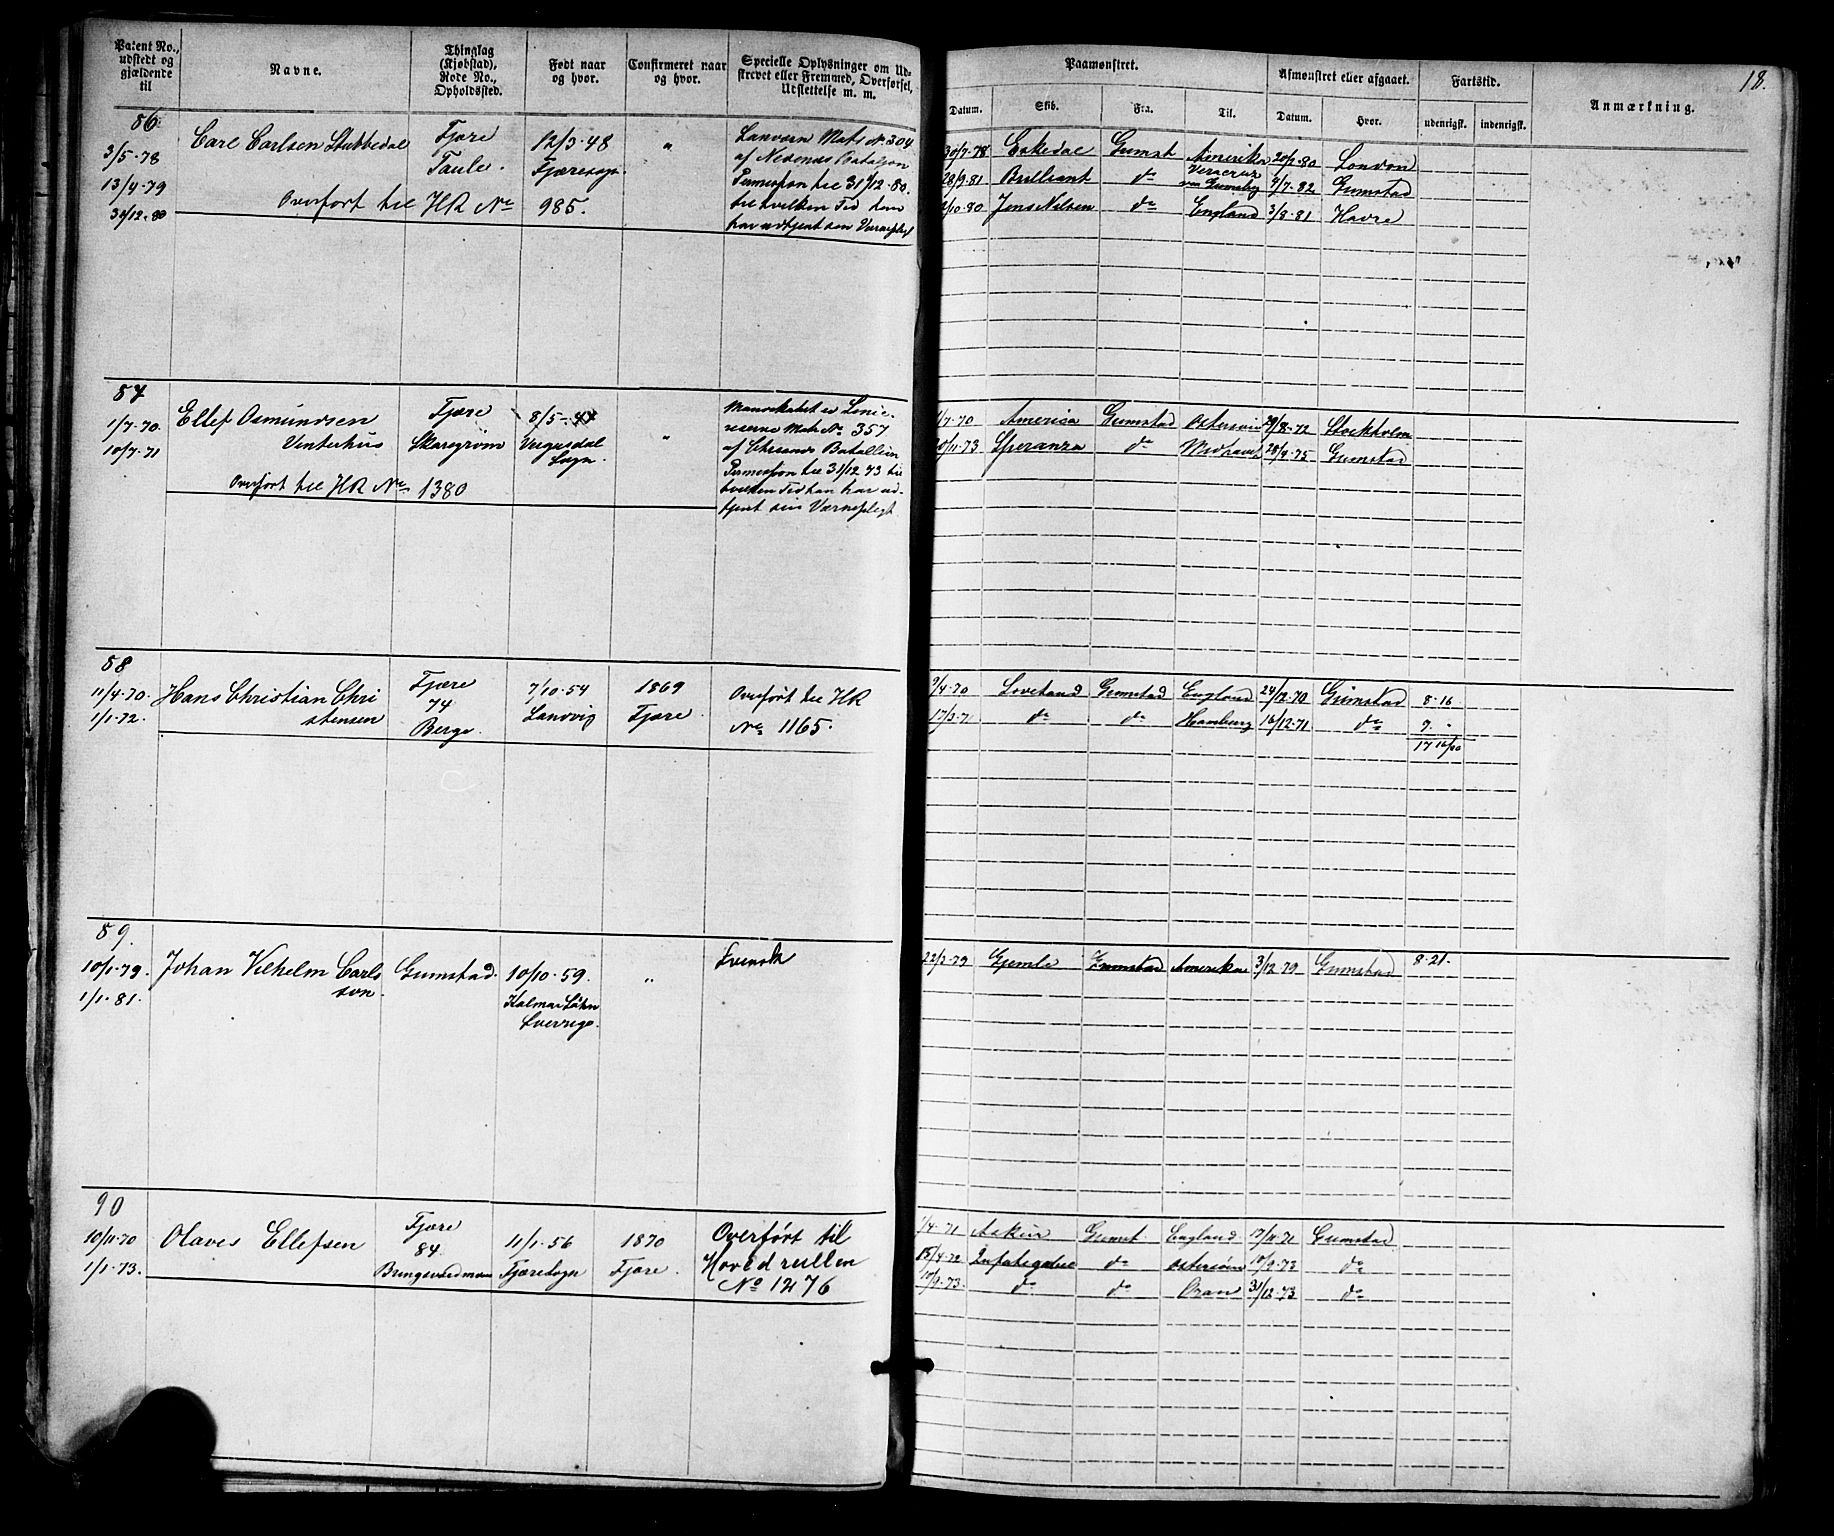 Patent No., udstedt og gjældende til
Navne.
Thinglag (Kjøbstad), Rode No., Opholdssted.
Født naar og hvor.
Confirmeret naar og hvor.
Specielle Oplysninger om Udskrevet eller Fremmed, Overførsel, Udslettelse m. m.
Paamønstret.
Datum. Skib. Fra. Til.
Afmønstret eller afgaaet.
Datum. Hvor.
Fartstid.
udenrigsk. indenrigsk.
Anmærkning.
18.
86
3/5-78
13/4-79
31/12-80
Carl Carlsen Stubbedal
Fjære
12/3-48
Fjæresogn
"
Overført til HR No 985.
Landværn Mats No 304
af Nedenæs Bataljon
Permission til 31/12-80.
til hvilken Tid han
har udtjent sin Værnepligt
30/7-78 Gumst Amerika 20/2-80 London
28/9-81 Brilliant do Veracruz 7/7-82 Grimstad
/10-80 Jens Nilsen do England 3/8-81 Havre
87
1/7-70
10/7-71
Ellef Osmundsen
Vinterhus
Fjære
Skaregrøm
8/5-44
Vegusdal
Sogn
"
Overført til HR No 1380
Mandskabet er Linie-
reserve Mats No 357
af Chrsands Bataillon
Permission til 31/12 73 til
hvilken Tid han har ud-
tjent sin Værnepligt
1/7-70 America Grimstad Østersøen /8-72 Stockholm
20/11-73 Speranza do Midhavet 28/9-75 Grimstad
88
11/4-70.
1/1-72.
Hans Christian Chri
stensen
Fjære
74
Berge.
7/10-54
Landvig
1869
Fjære.
Overført til HR
No 1165.
/4-70 Grimstad England 24/12-70 Grimstad 8-16
17/3-71 do do Hamburg 16/12-71 do 9.
17 16/30
89.
10/1-79.
1/1-81.
Johan Vilhelm Carls
son.
Grimstad.
10/10-59.
Kalmar Löhn
Sverrige.
"
Svensk
22/3-79 Gjemle Grimstad Amerika 3/12-79 Grimstad 8-21.
90
10/11-70
1/1-73.
Olaves Ellefsen
Fjære
84.
11/1-56
Fjæresogn
1870
Fjære.
Overført til
Hovedrullen
No 1276
/4-71 Askur Grimst England 17/11-71 Grimstad
15/4-72 Indfatigable do Østersøen 10/9-73 do
10/9-73. do do Oran 31/12-73 do